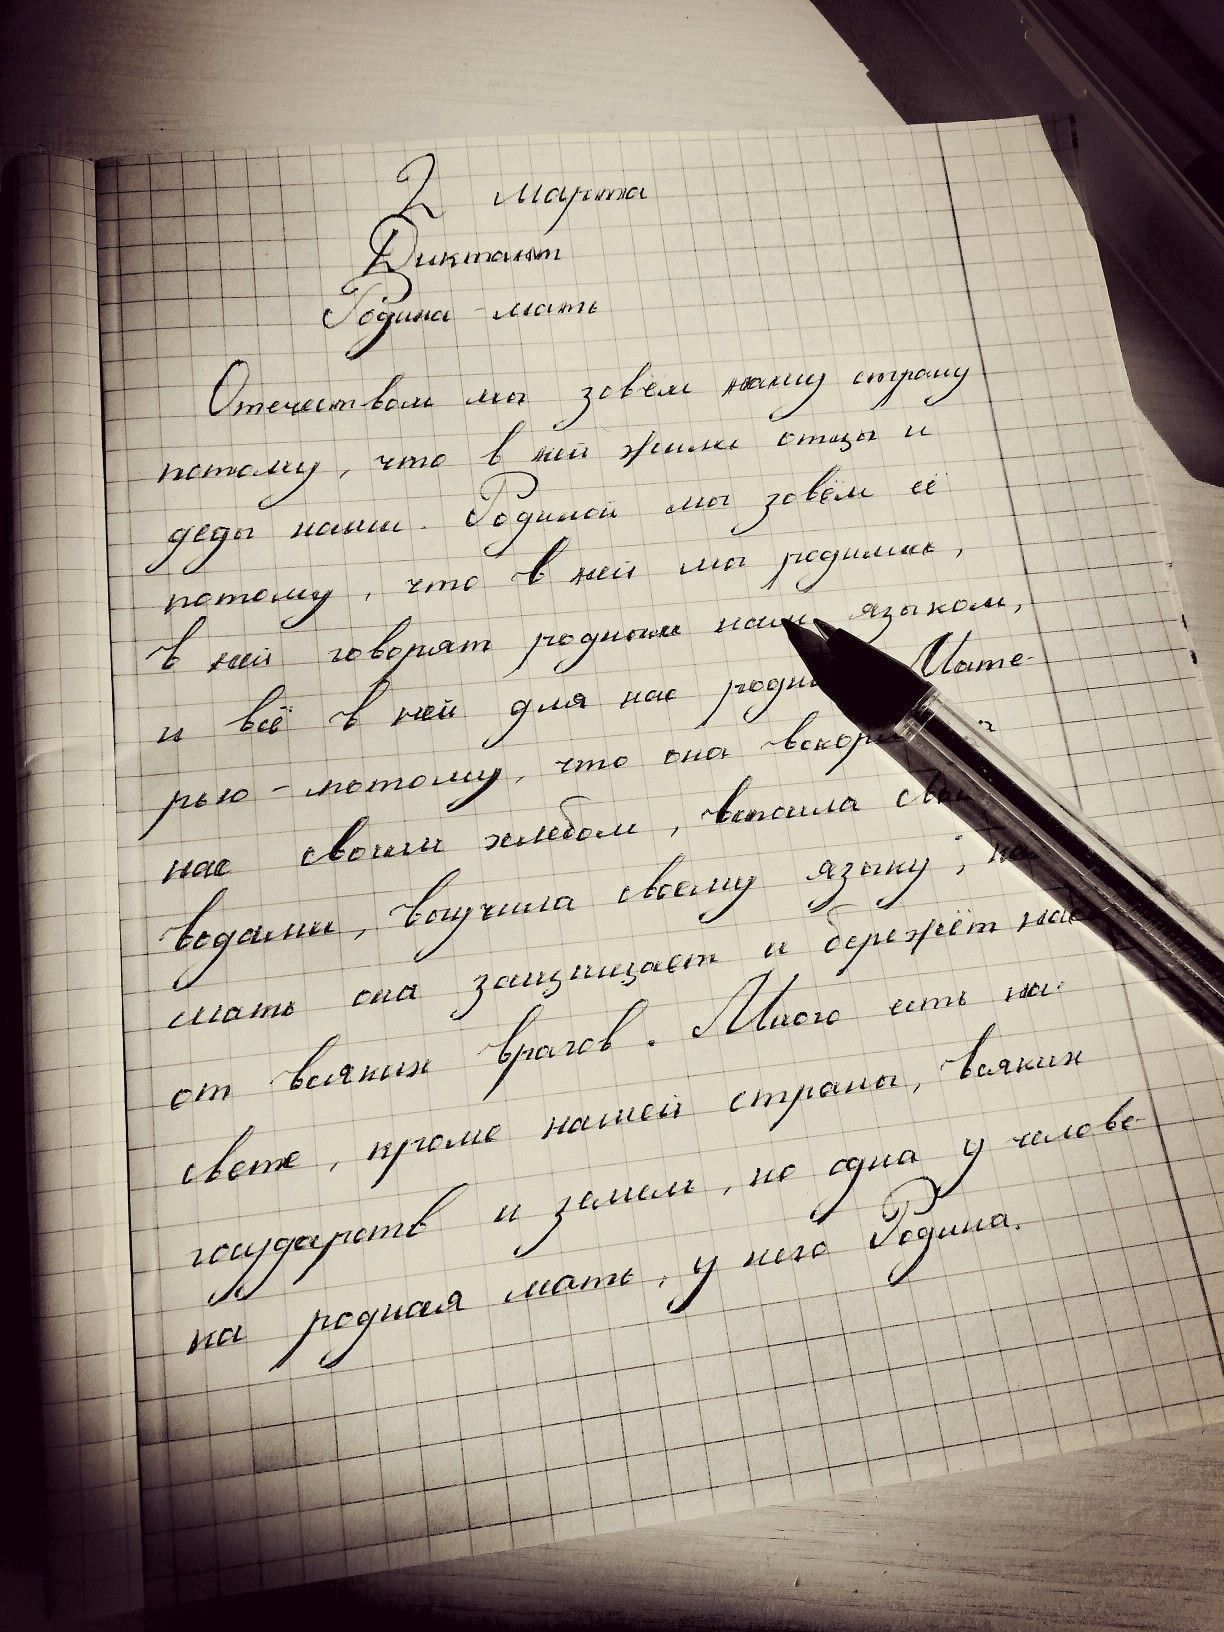 2 марта
Диктант
Родина-мать
Отечеством мы зовём нашу страну
потому, что в ней жили отцы и
деды наши. Родиной мы зовём её
потому, что в ней мы родились,
в ней говорят родным нам языком,
и всё в ней для нас Мате-
рью - потому, что она
нас своим хлебом, вспоила
водами, выучила своему языку,
мать она защищает и бережёт нас
от всяких врагов. Много есть на
свете, кроме нашей страны, всяких
государств и земель, но одна у челове-
ка родная мать, у него Родина.